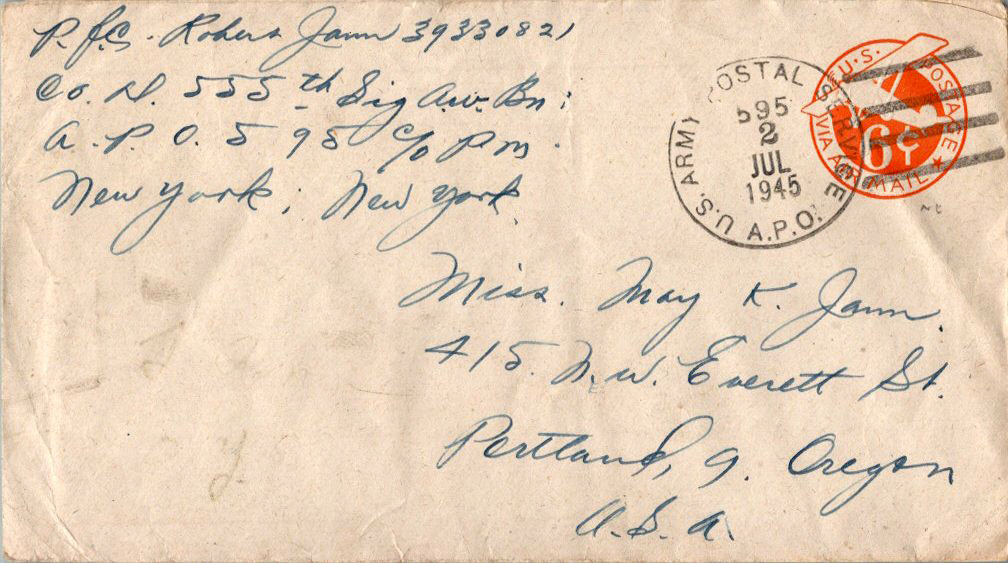 P.f.C. Robert Jann 39330821
Co. D. 555th Sig A.W. Bn:
A. P. O. 595 c/o P.M.
New York, New York.
U.S. POSTAGE
VIA AIR MAIL
6¢
U.S. ARMY POSTAL SERVICE
595
2
JUL
1945
A.P.O.
Miss. May K. Jann.
415. N.W. Everett St.
Portland, 9. Oregon
U.S.A.